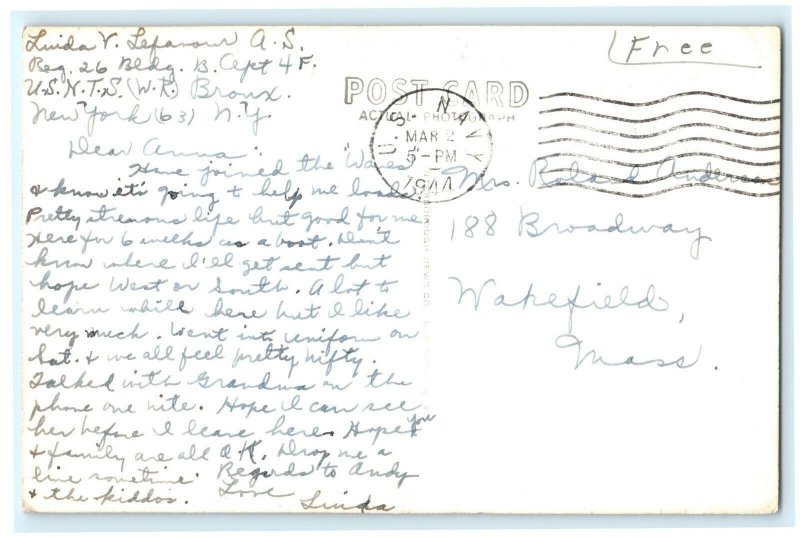 Linda V. Lefavour A.S.
Reg. 26 Bldg. B. Apt 4F.
U.S.N.T.S. (W.R.) Bronx.
New York (63) N.Y.
Free
POST CARD
ACTUAL PHOTOGRAPH
U.S. NAVY
MAR 2
5-PM
1944
Dear Anna:
Have joined the Waves
& know it's going to help me loads.
Pretty strenous life but good for me
Here for 6 weeks as a boot. Don't
know where I'll get sent but
hope West or South. A lot to
learn while here but I like
very much. Went into uniform on
Sat. & we all feel pretty nifty.
Talked with Grandma on the
phone one nite. Hope I can see
her before I leave here. Hope you
& family are all O.K. Drop me a
line sometime. Regards to Andy
& the kiddos. Love
Linda
Mrs. Roland Anderson
188 Broadway
Wakefield,
Mass.